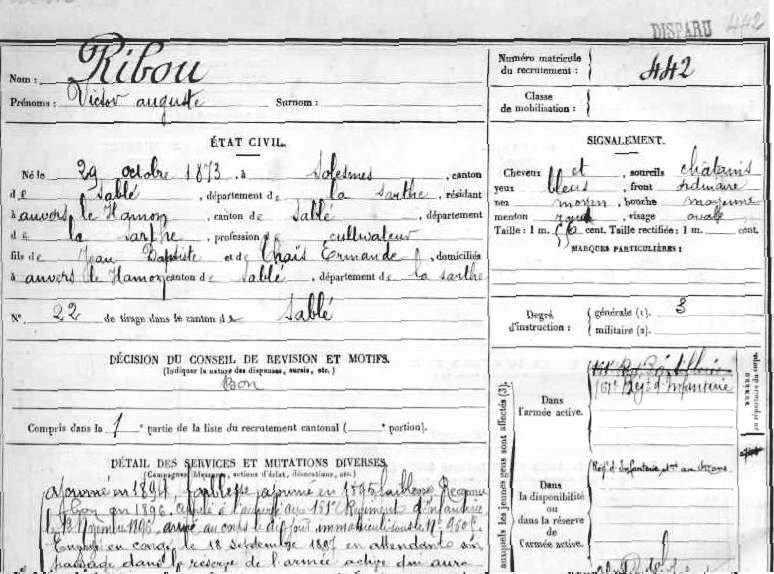 DISPARU 442
Nom : Ribou
Prénoms : Victor auguste Surnom :
Numéro matricule du recrutement : 442
Classe de mobilisation :
ÉTAT CIVIL.
Né le 29 octobre 1873, à Solesmes, canton
de Sablé, département de la Sarthe, résidant
à auvers le Hamon, canton de Sablé, département
de la Sarthe, profession de cultivateur
fils de Jean Baptiste et de Ermande, domiciliés
à auvers le Hamon canton de Sablé, département de la Sarthe
N° 22 de tirage dans le canton de Sablé
SIGNALEMENT.
Cheveux et, sourcils châtains
yeux bleus, front ordinaire
nez moyen, bouche moyenne
menton rond, visage ovale
Taille : 1 m. cent. Taille rectifiée : 1 m. cent.
MARQUES PARTICULIÈRES :
Degré d'instruction : générale (1). 3
militaire (2).
DÉCISION DU CONSEIL DE REVISION ET MOTIFS.
(Indiquer la nature des dispenses, sursis, etc.)
Bon
Compris dans la 1e partie de la liste du recrutement cantonal ( e portion).
DÉTAIL DES SERVICES ET MUTATIONS DIVERSES.
(Campagnes, blessures, actions d'éclat, décorations, etc.)
ajourné en 1894, faiblesse, ajourné en 1895 faiblesse Reconnu
bon en 1896. Appelé à l'activité au 161e Régiment d'infanterie
le Novembre 1896 arrivé au corps le dit jour, immatriculé sous le N°
Envoyé en congé le 18 Septembre 1897 en attendant son
passage dans la réserve de l'armée active qui aura
auxquels les jeunes gens sont affectés (3).
Dans l'armée active.
161e Régt d'Infanterie
Dans la disponibilité ou dans la réserve de l'armée active.
Régt d'Infanterie
NUMÉROS
au répertoire du corps.